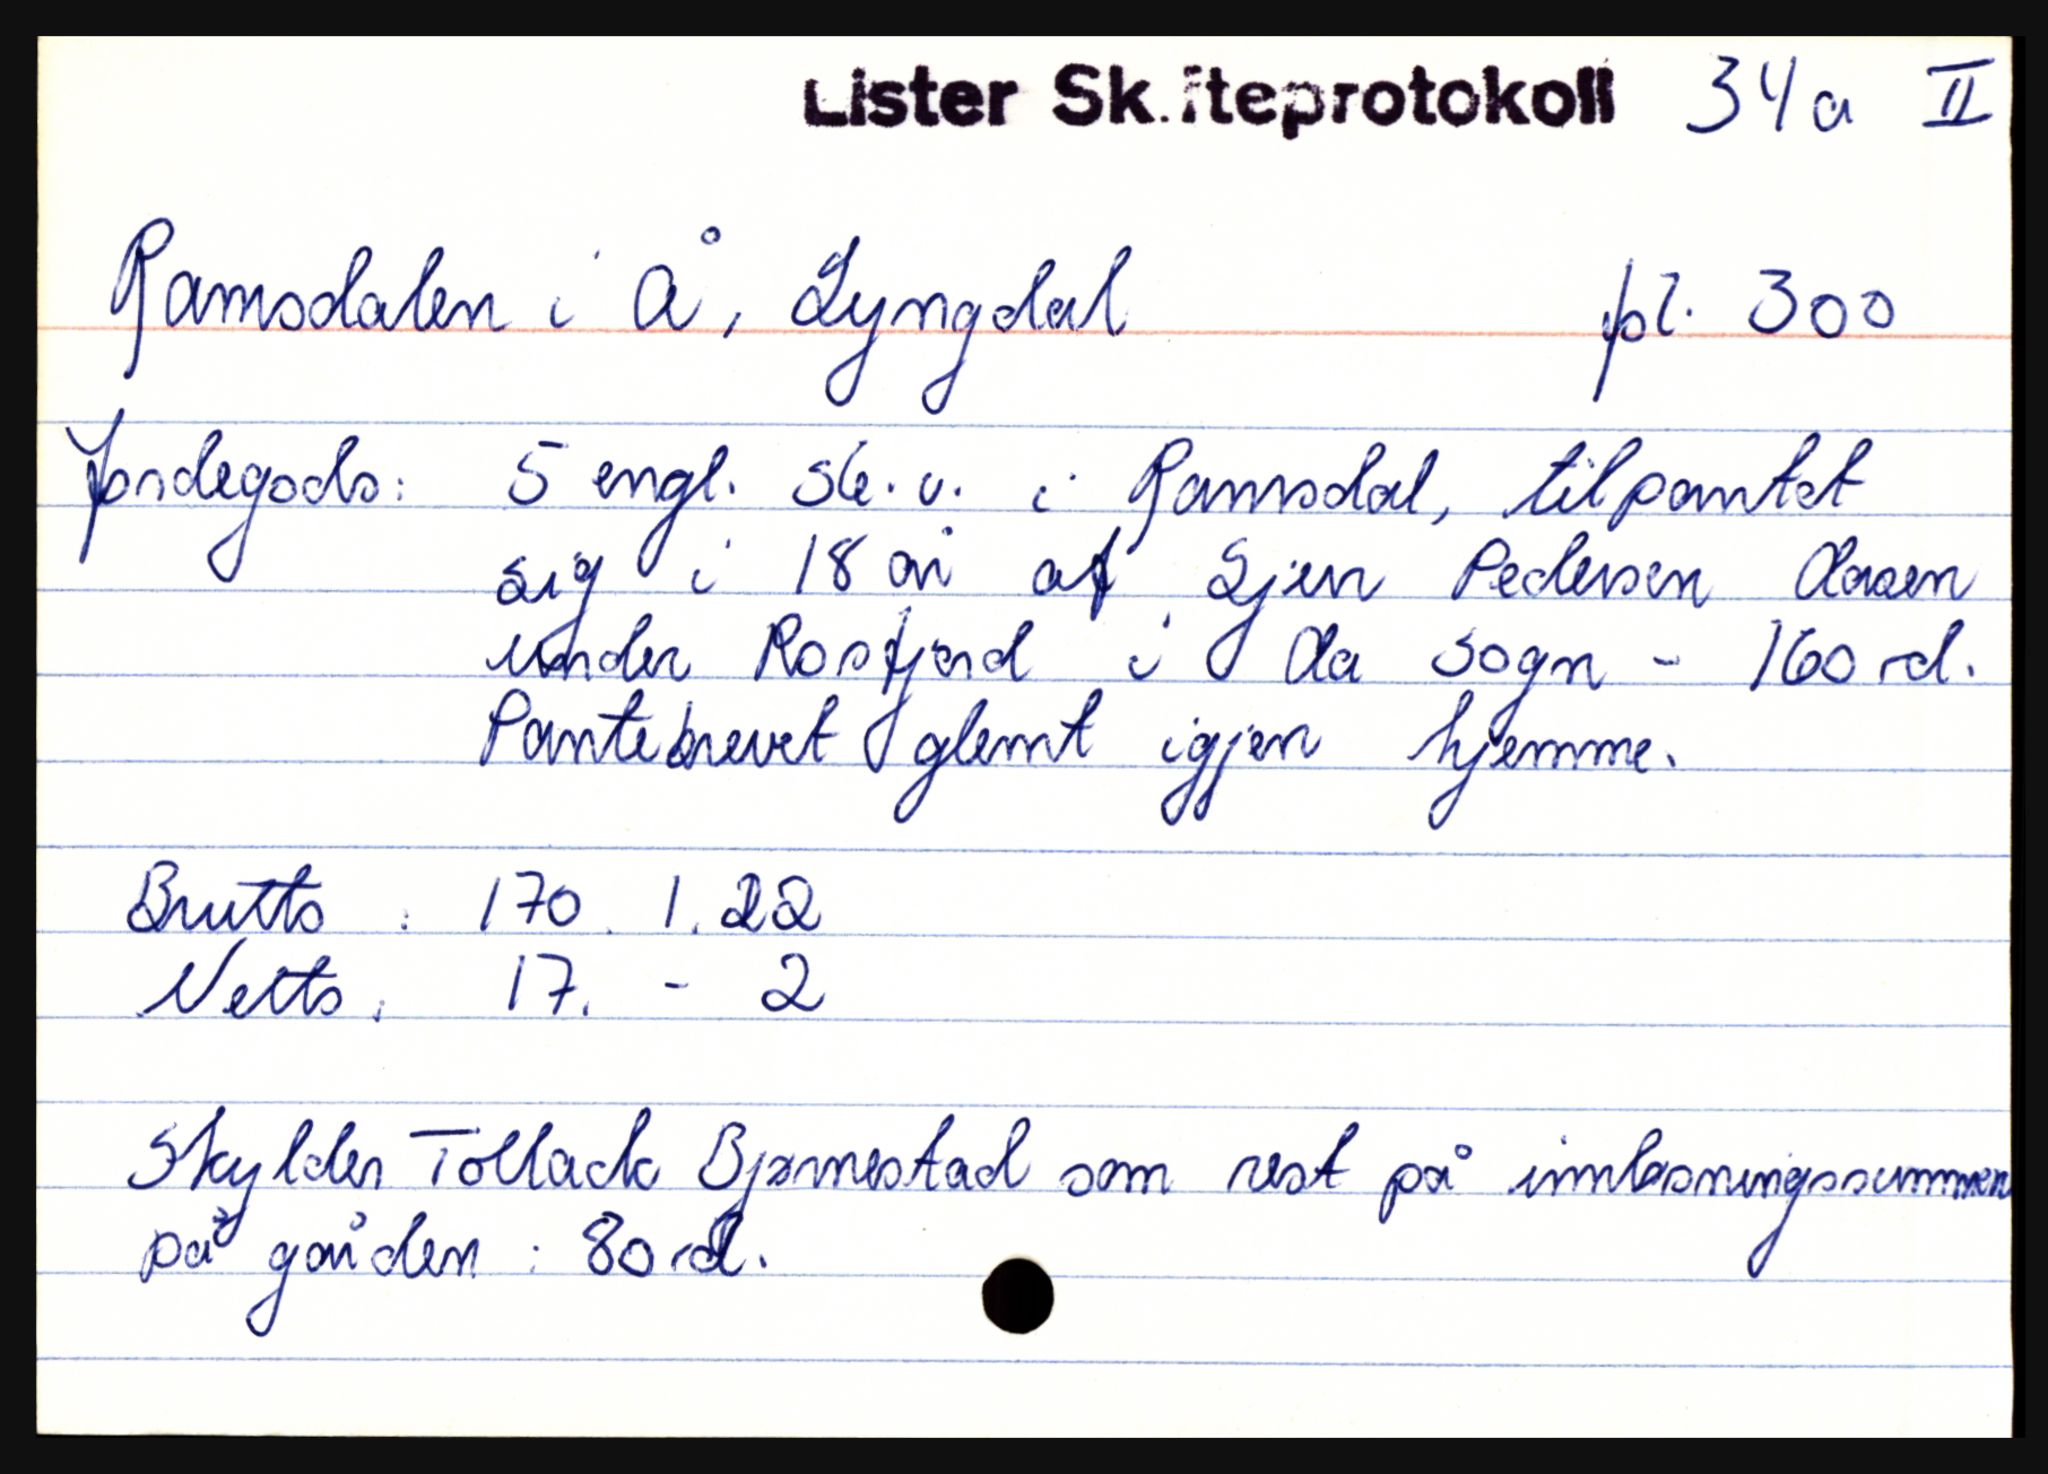 Lister Sk.fteprotokoll 34a II
Ramsdalen i Å, Lyngdal pl. 300
Jordegods: 5 engl. sk. v. i Ramsdal, tilpantet
sig i 18 år af Sjen Pedersen Aaen
under Rosfjord i Aa sogn - 160 rd.
Pantebrevet glemt igjen hjemme.
Brutto : 170. 1. 22
Netto : 17. - 2
Skylder Tollack Bjørnestad som rest på innløsningssummen
på gården : 80 rd.